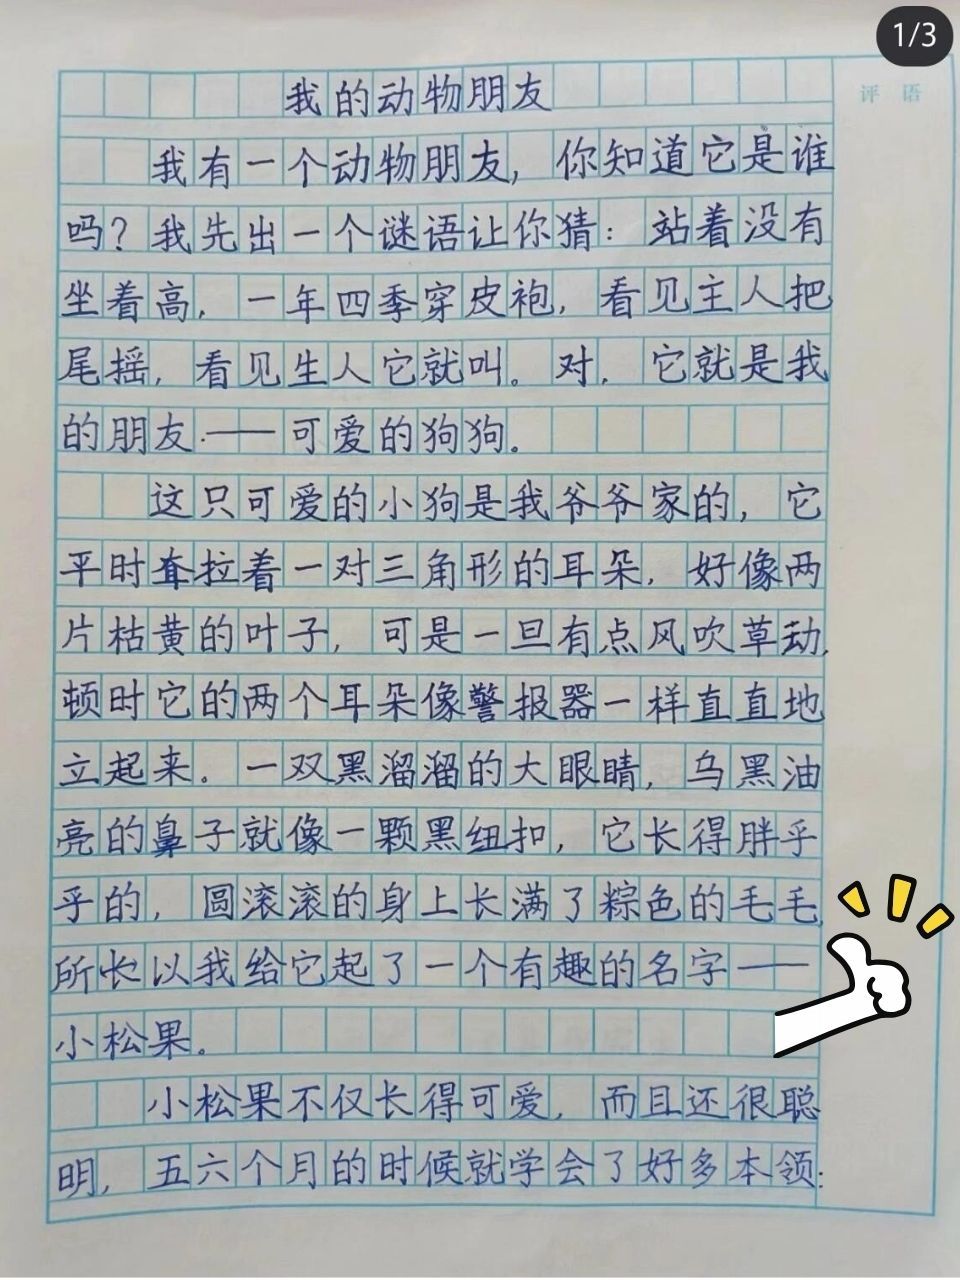 1/3
评 语
我的动物朋友
我有一个动物朋友，你知道它是谁
吗？我先出一个谜语让你猜：站着没有
坐着高，一年四季穿皮袍，看见主人把
尾摇，看见生人它就叫。对，它就是我
的朋友——可爱的狗狗。
这只可爱的小狗是我爷爷家的，它
平时耷拉着一对三角形的耳朵，好像两
片枯黄的叶子，可是一旦有点风吹草动，
顿时它的两个耳朵像警报器一样直直地
立起来。一双黑溜溜的大眼睛，乌黑油
亮的鼻子就像一颗黑纽扣，它长得胖乎
乎的，圆滚滚的身上长满了粽色的毛毛，
所以我给它起了一个有趣的名字——
小松果。
小松果不仅长得可爱，而且还很聪
明，五六个月的时候就学会了好多本领：